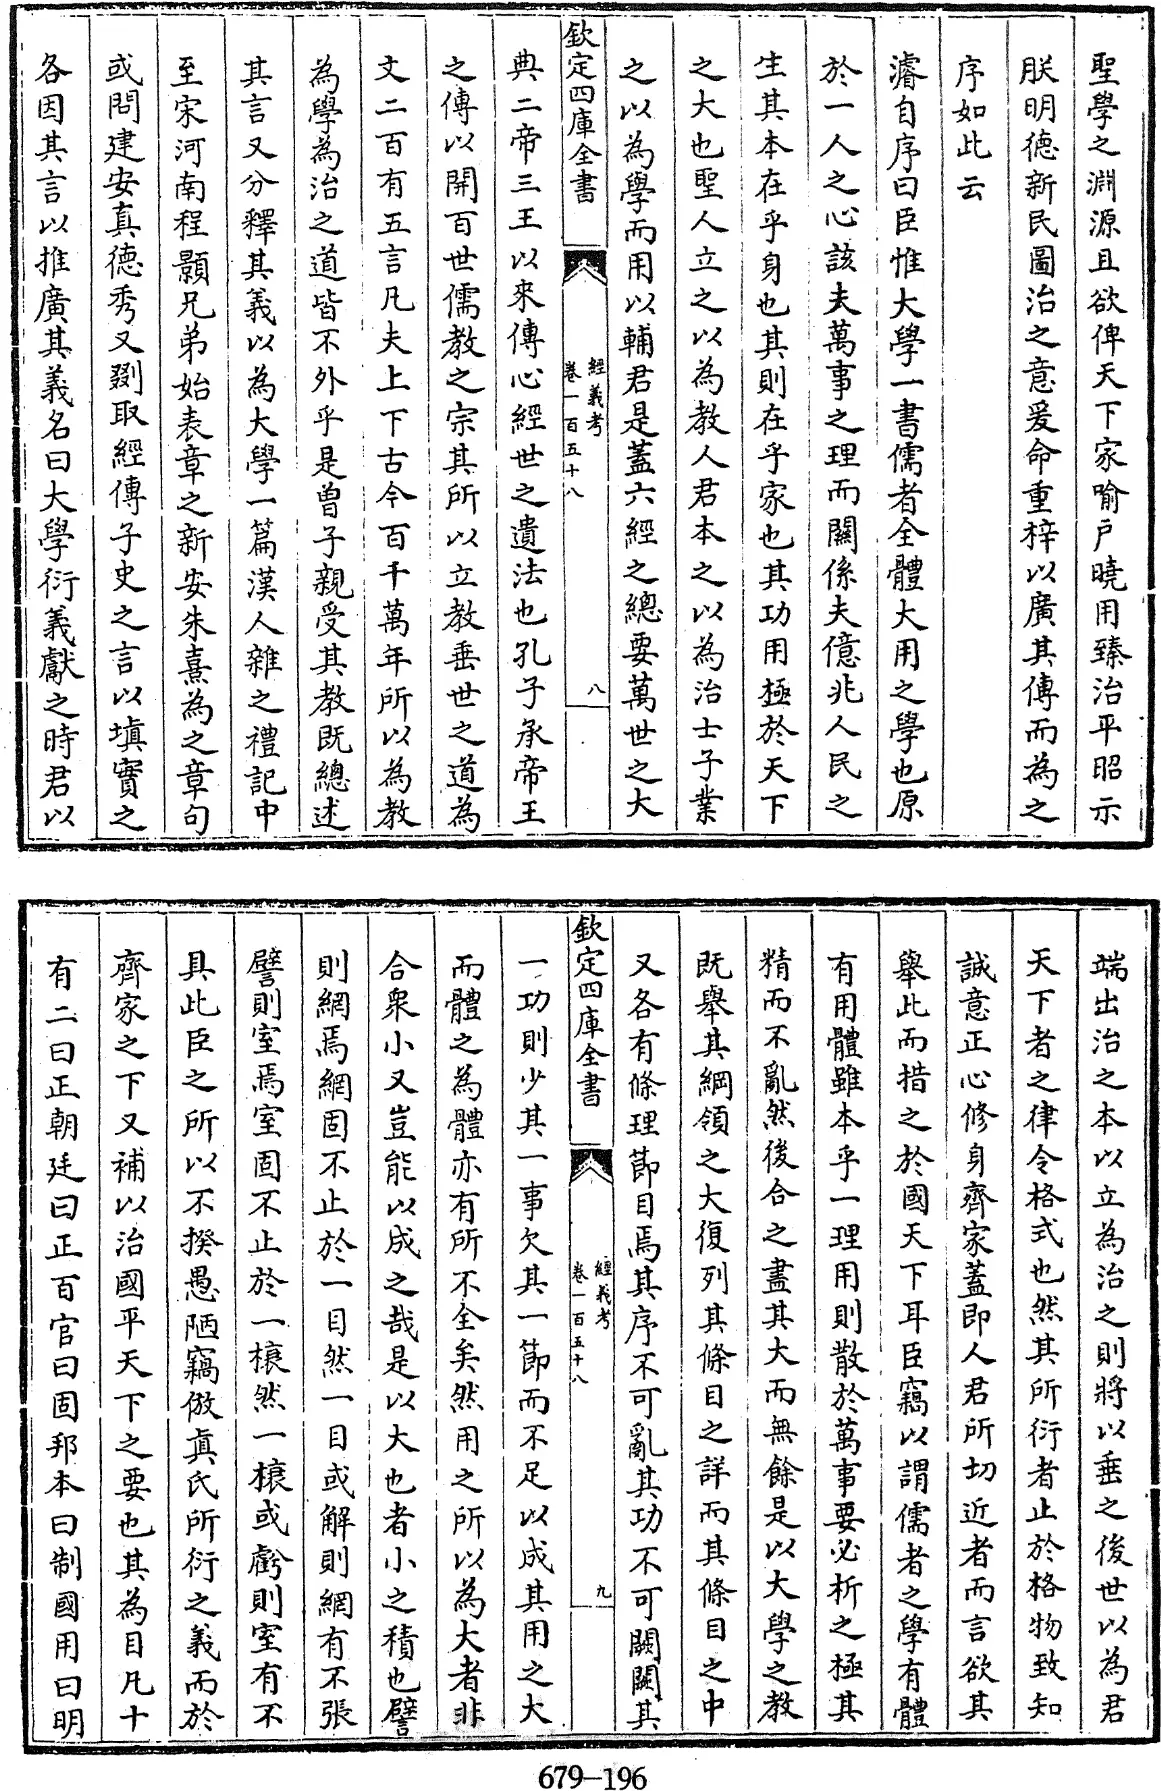 聖學之淵源且欲俾天下家喻戶曉用臻治平昭示
朕明德新民圖治之意爰命重梓以廣其傳而為之
序如此云
濬自序曰臣惟大學一書儒者全體大用之學也原
於一人之心該夫萬事之理而關係夫億兆人民之
生其本在乎身也其則在乎家也其功用極於天下
之大也聖人立之以為教人君本之以為治士子業
之以為學而用以輔君是蓋六經之總要萬世之大
欽定四庫全書
經義考
卷一百五十八
八
典二帝三王以來傳心經世之遺法也孔子承帝王
之傳以開百世儒教之宗其所以立教垂世之道為
文二百有五言凡夫上下古今百千萬年所以為教
為學為治之道皆不外乎是曾子親受其教既總述
其言又分釋其義以為大學一篇漢人雜之禮記中
至宋河南程顥兄弟始表章之新安朱熹為之章句
或問建安真德秀又剟取經傳子史之言以填實之
各因其言以推廣其義名曰大學衍義獻之時君以
端出治之本以立為治之則將以垂之後世以為君
天下者之律令格式也然其所衍者止於格物致知
誠意正心修身齊家蓋即人君所切近者而言欲其
舉此而措之於國天下耳臣竊以謂儒者之學有體
有用體雖本乎一理用則散於萬事要必析之極其
精而不亂然後合之盡其大而無餘是以大學之教
既舉其綱領之大復列其條目之詳而其條目之中
又各有條理節目焉其序不可亂其功不可闕闕其
欽定四庫全書
經義考
卷一百五十八
九
一功則少其一事欠其一節而不足以成其用之大
而體之為體亦有所不全矣然用之所以為大者非
合衆小又豈能以成之哉是以大也者小之積也譬
則網焉網固不止於一目然一目或解則網有不張
譬則室焉室固不止於一榱然一榱或虧則室有不
具此臣之所以不揆愚陋竊倣真氏所衍之義而於
齊家之下又補以治國平天下之要也其為目凡十
有二曰正朝廷曰正百官曰固邦本曰制國用曰明
679-196